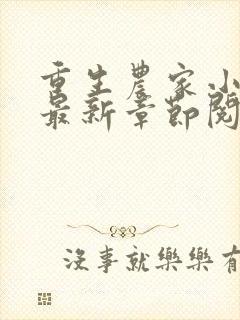 重生農家小
最新章節閱
沒事就樂樂有